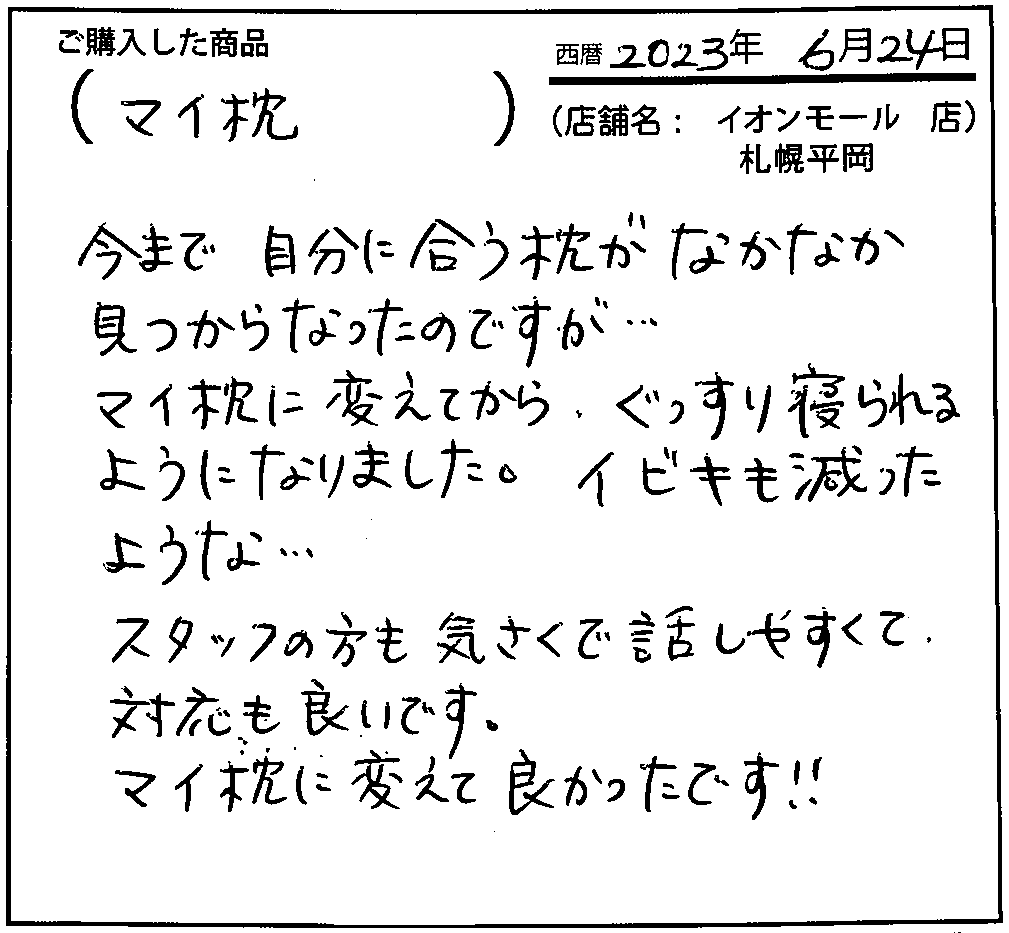 ご購入した商品
(マイ枕)
西暦 2023年 6月24日
(店舗名: イオンモール 店)
札幌平岡
今まで 自分に合う枕がなかなか
見つからなったのですが…
マイ枕に変えてから、ぐっすり寝られる
ようになりました。イビキも減った
ような…
スタッフの方も気さくで話しやすくて、
対応も良いです。
マイ枕に変えて良かったです!!